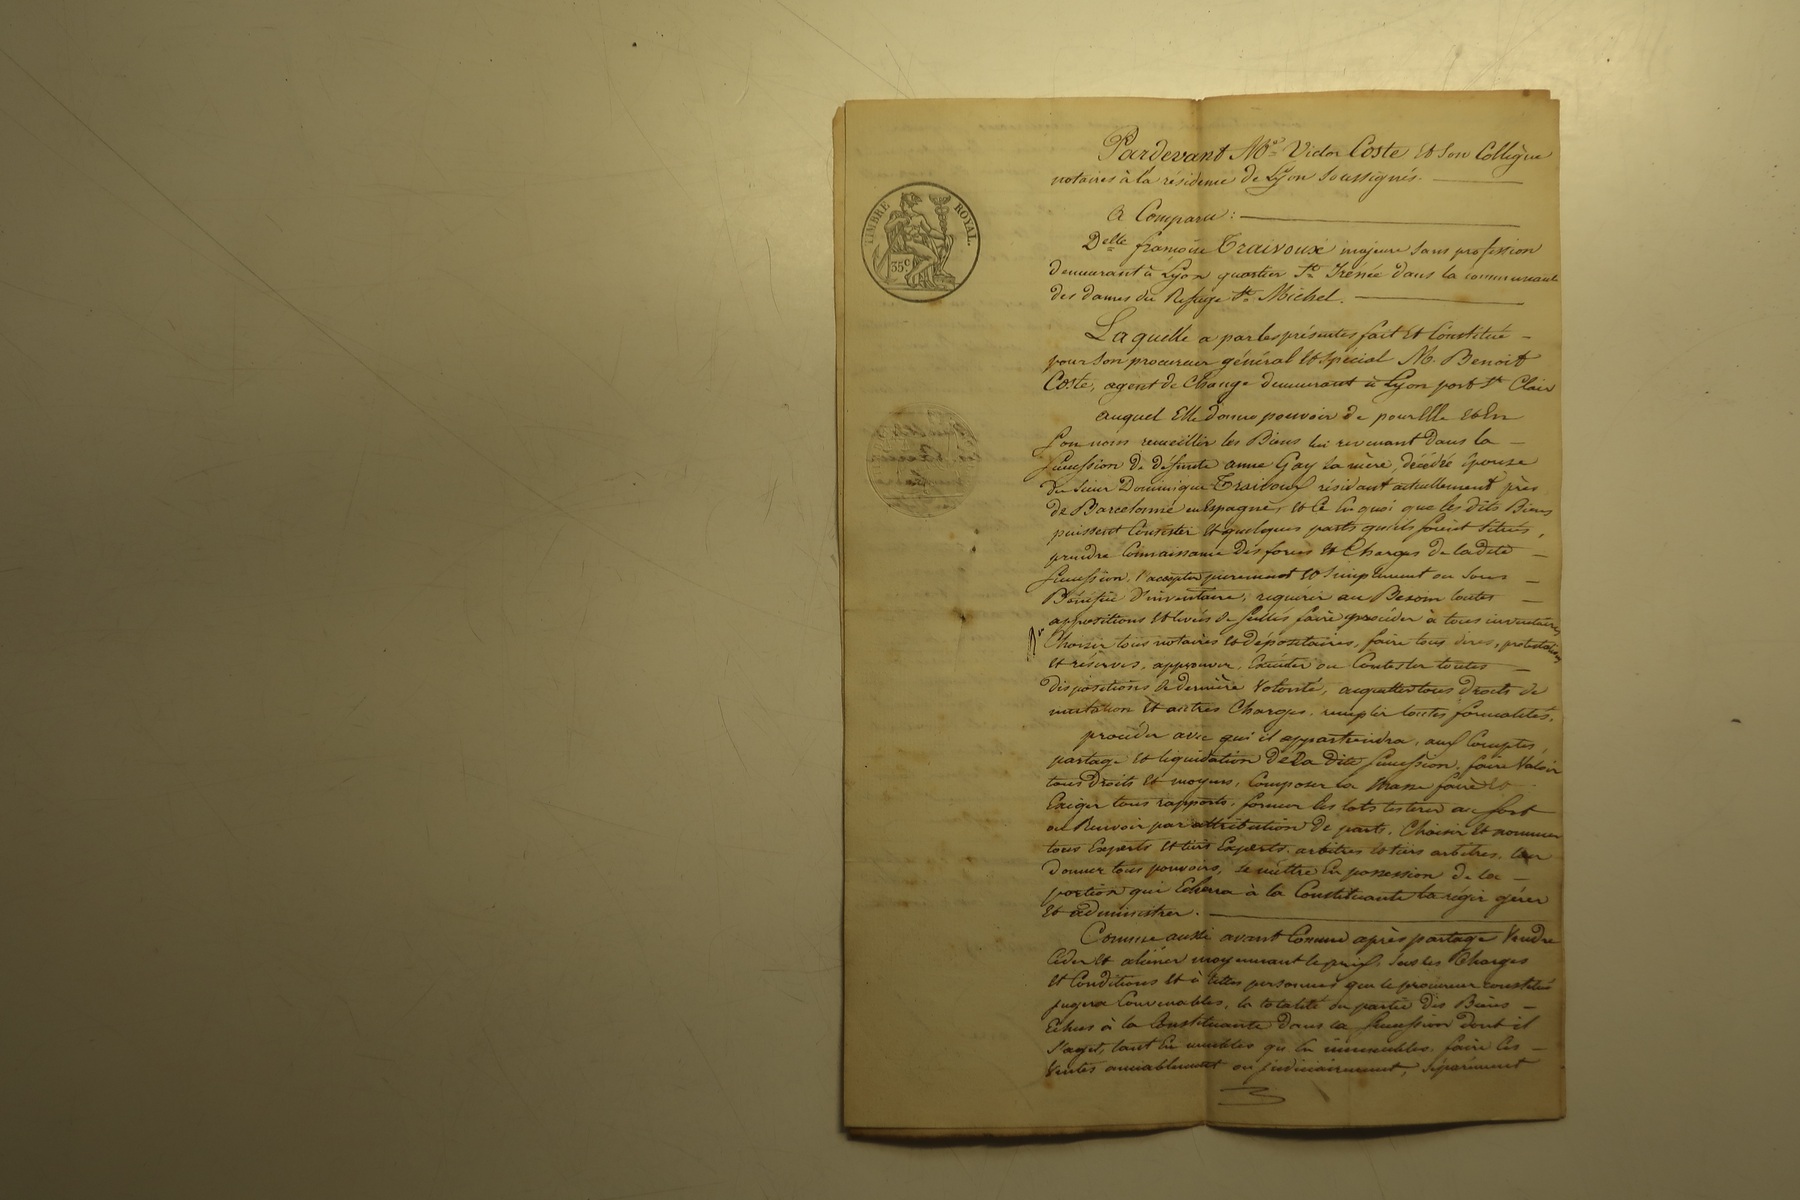 Pardevant Me Victor Coste et son Collègue
notaires à la résidence de Lyon soussignés.
A Comparu :
Delle françoise Traivoux majeure sans profession
demeurant à Lyon quartier St Irénée dans la communauté
des dames du Refuge St Michel.
TIMBRE ROYAL.
35c
Laquelle a par les présentes fait et Constitué
pour son procureur général et spécial M. Benoit
Coste, agent de Change demeurant à Lyon port St Clair
auquel Elle donne pouvoir de pour Elle et En
son nom recueillir les Biens lui revenant dans la
succession de défunte anne Gay sa mère, décédée épouse
du sieur Dominique Traivoux résidant actuellement près
de Barcelonne en Espagne, et ce En quoi que les dits Biens
puissent Consister et quelques parts qu'ils soient situés,
prendre Connaissance des forces et Charges de la dite
succession, l'accepter purement et simplement ou sous
Bénéfice d'inventaire, requérir au Besoin toutes
appositions et levées de scellés faire procéder à tous inventaires
Choisir tous notaires et dépositaires, faire tous dires, protestations
et réserves, approuver, Exécuter ou Contester toutes
dispositions de dernière volonté, acquitter tous droits de
mutation et autres Charges, remplir toutes formalités.
procéder avec qui il appartiendra, aux Comptes,
partage et liquidation de la dite succession, faire valoir
tous Droits et moyens, Composer la Masse faire et
Exiger tous rapports, former les lots les tirer au sort
ou Recevoir par attribution de parts, Choisir et nommer
tous Experts et tiers Experts, arbitres et tiers arbitres, leur
donner tous pouvoirs, se mettre En possession de la
portion qui Echerra à la Constituante la régir gérer
et administrer.
Comme aussi avant Comme après partage Vendre
Céder et aliéner moyennant le prix, sous les Charges
et Conditions et à telles personnes que le procureur constitué
jugera Convenables, la totalité ou partie des Biens
Echus à la Constituante dans la succession dont il
s'agit, tant En meubles qu'En immeubles, faire les
Ventes amiablement ou judiciairement, séparément